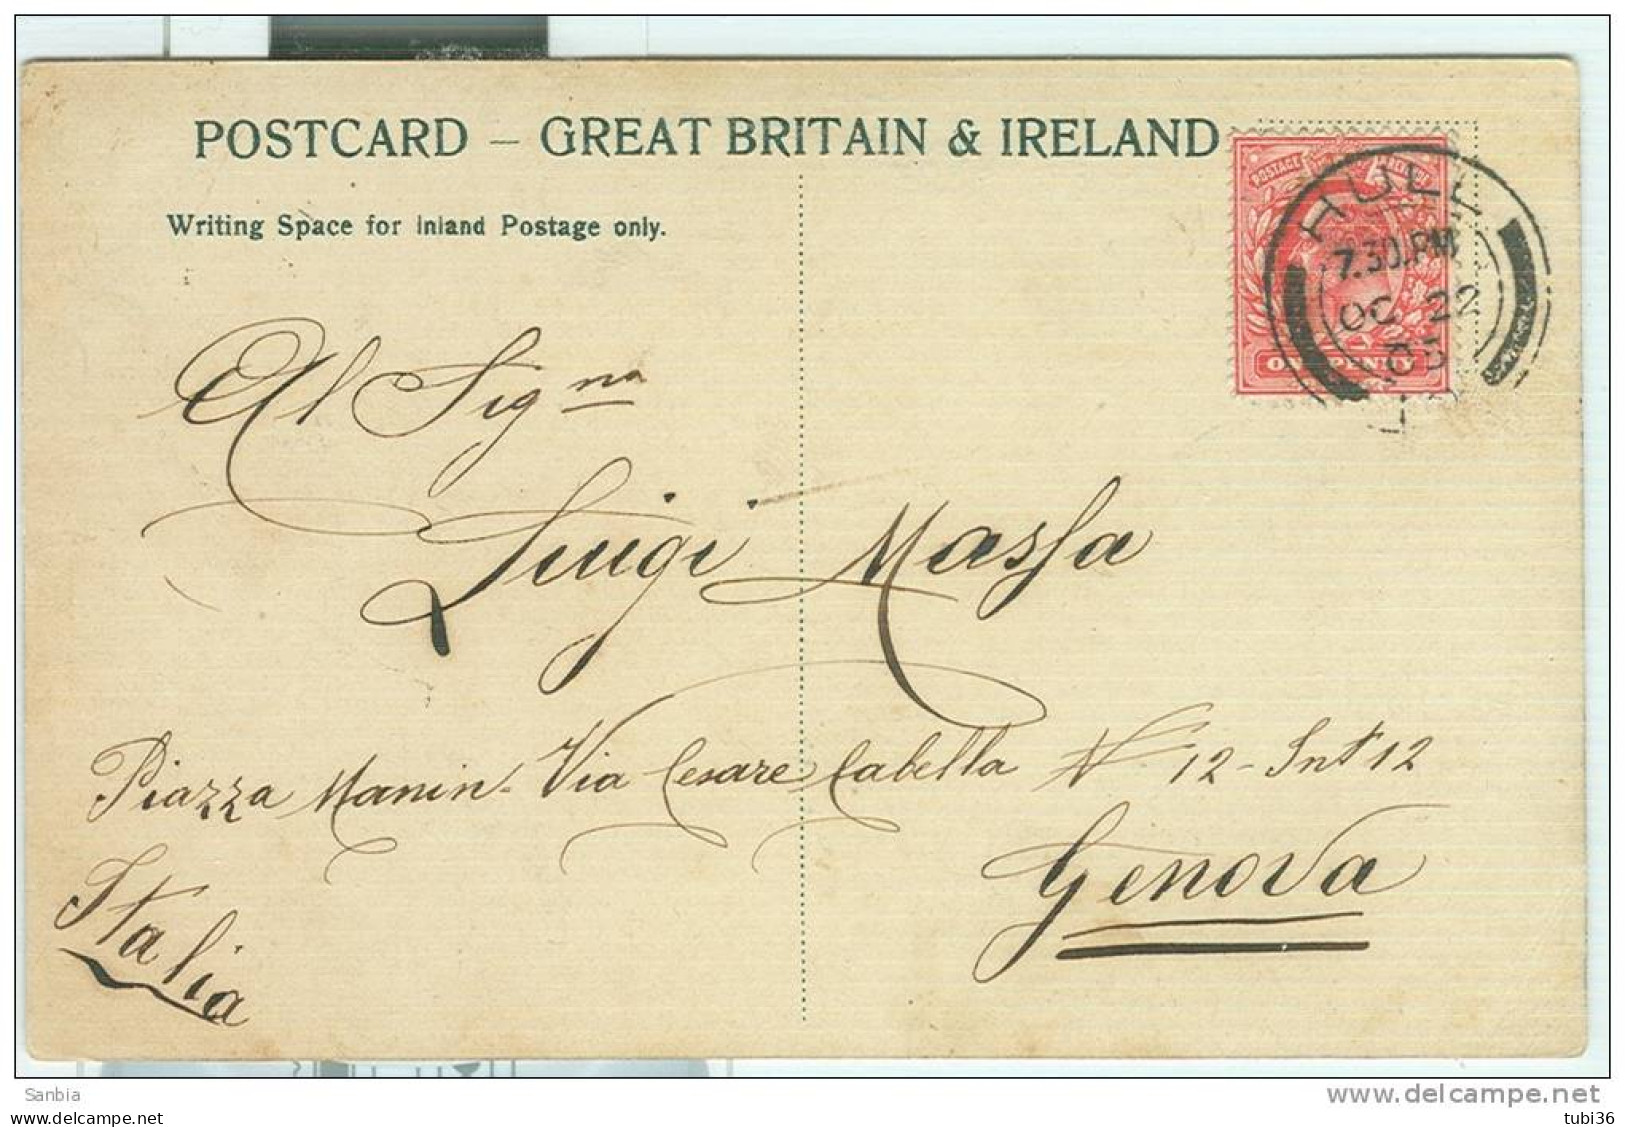 POSTCARD – GREAT BRITAIN & IRELAND
Writing Space for Inland Postage only.
POSTAGE
ONE PENNY
HULL
7.30.PM
OC 22
05
Al Signa
Luigi Massa
Piazza Manin. Via Cesare Cabella No 12 - Int 12
Genova
Italia
Sanbia
www.delcampe.net
tubi36